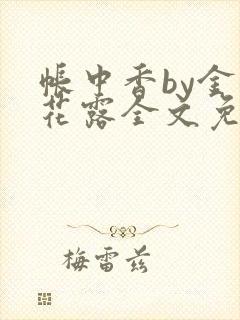 帐中香by金
花露全文免
梅雷兹